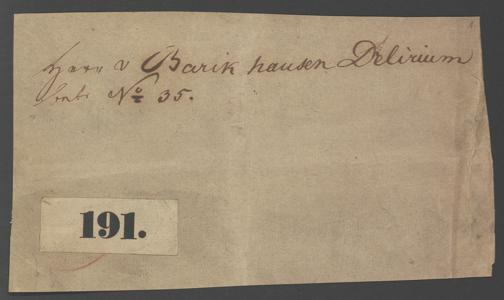 Herr v Barik hausen Delirium
No 35.
191.